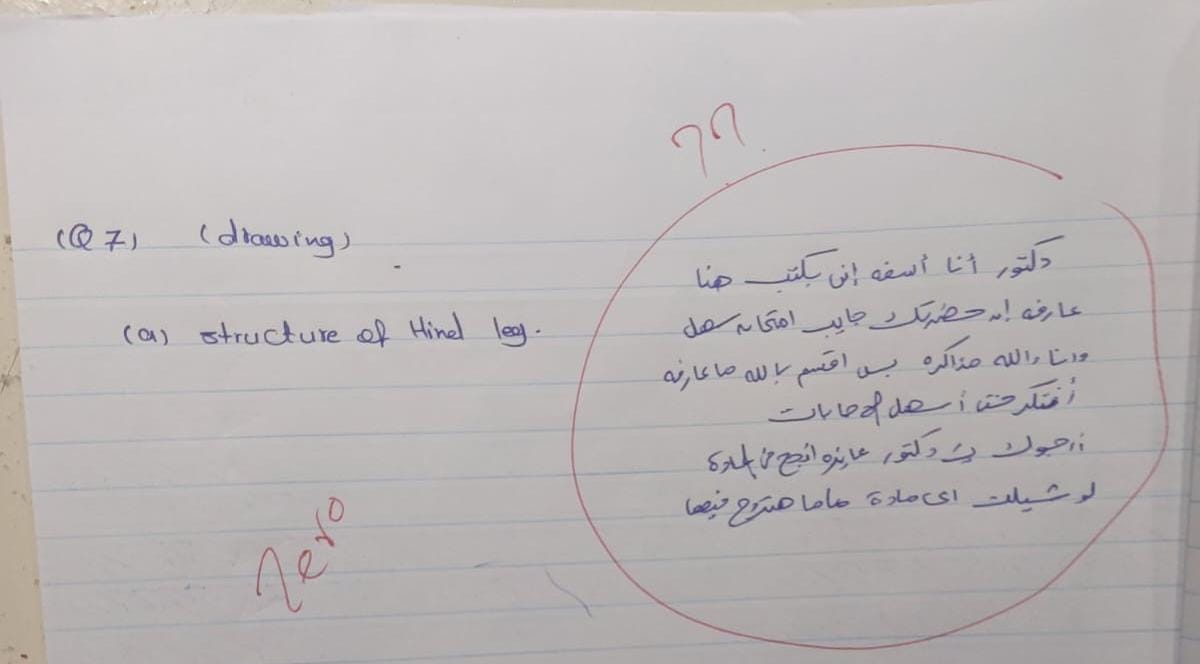 ؟؟
(Q 7) (drawing)
دكتور أنا أسفه إنى بكتب هنا
(a) structure of Hind leg.
عارفه إن حضرتك جايب امتحان سهل
وانا والله مذاكره بس اقسم بالله ما عارفه
أفتكر حتى أسهل الاجابات
ارجوك يا دكتور عايزه انجح فى المادة
لو شيلت اى مادة ماما هتروح فيها
zero